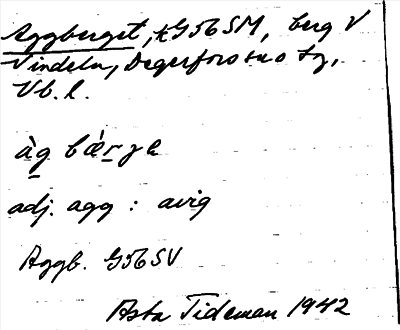 Aggberget, +G56SM, berg V
Vindeln, Degerfors sn o tg,
Vb. l.
àg bǽrgɛ
adj. agg : avig
Aggb. G56SV
Asta Tideman 1942